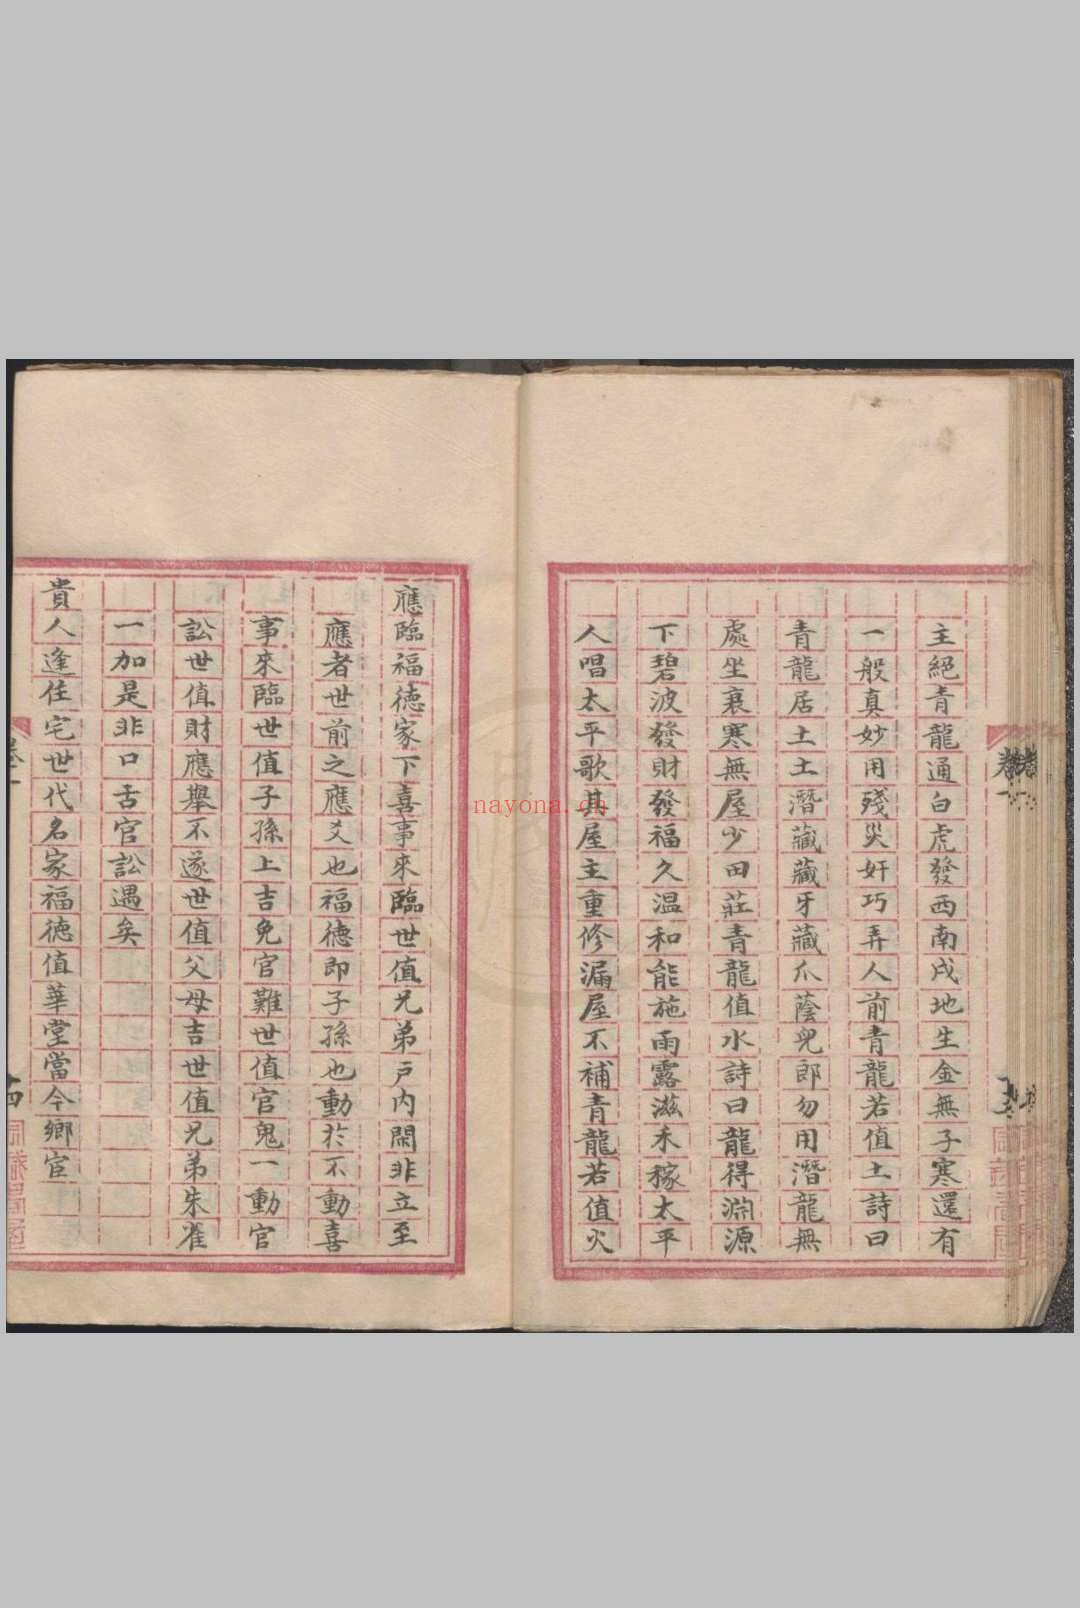 主絕青龍通白虎發西南戌地生金無子寒還有
一般真妙用殘災奸巧弄人前青龍若值土詩曰
青龍居土土潛藏藏牙藏爪蔭兒郎勿用潛龍無
處坐衰寒無屋少田莊青龍值水詩曰龍得淵源
下碧波發財發福久温和能施雨露滋禾稼太平
人唱太平歌其屋主重修漏屋不補青龍若值火
應臨福德家下喜事來臨世值兄弟戶内閑非立至
應者世前之應爻也福德即子孫也動於不動喜
事來臨世值子孫上吉免官難世值官鬼一動官
訟世值財應舉不遂世值父母吉世值兄弟朱雀
一加是非口舌官訟遇矣
貴人逢住宅世代名家福德值華堂當今鄉宦
nayona.cn